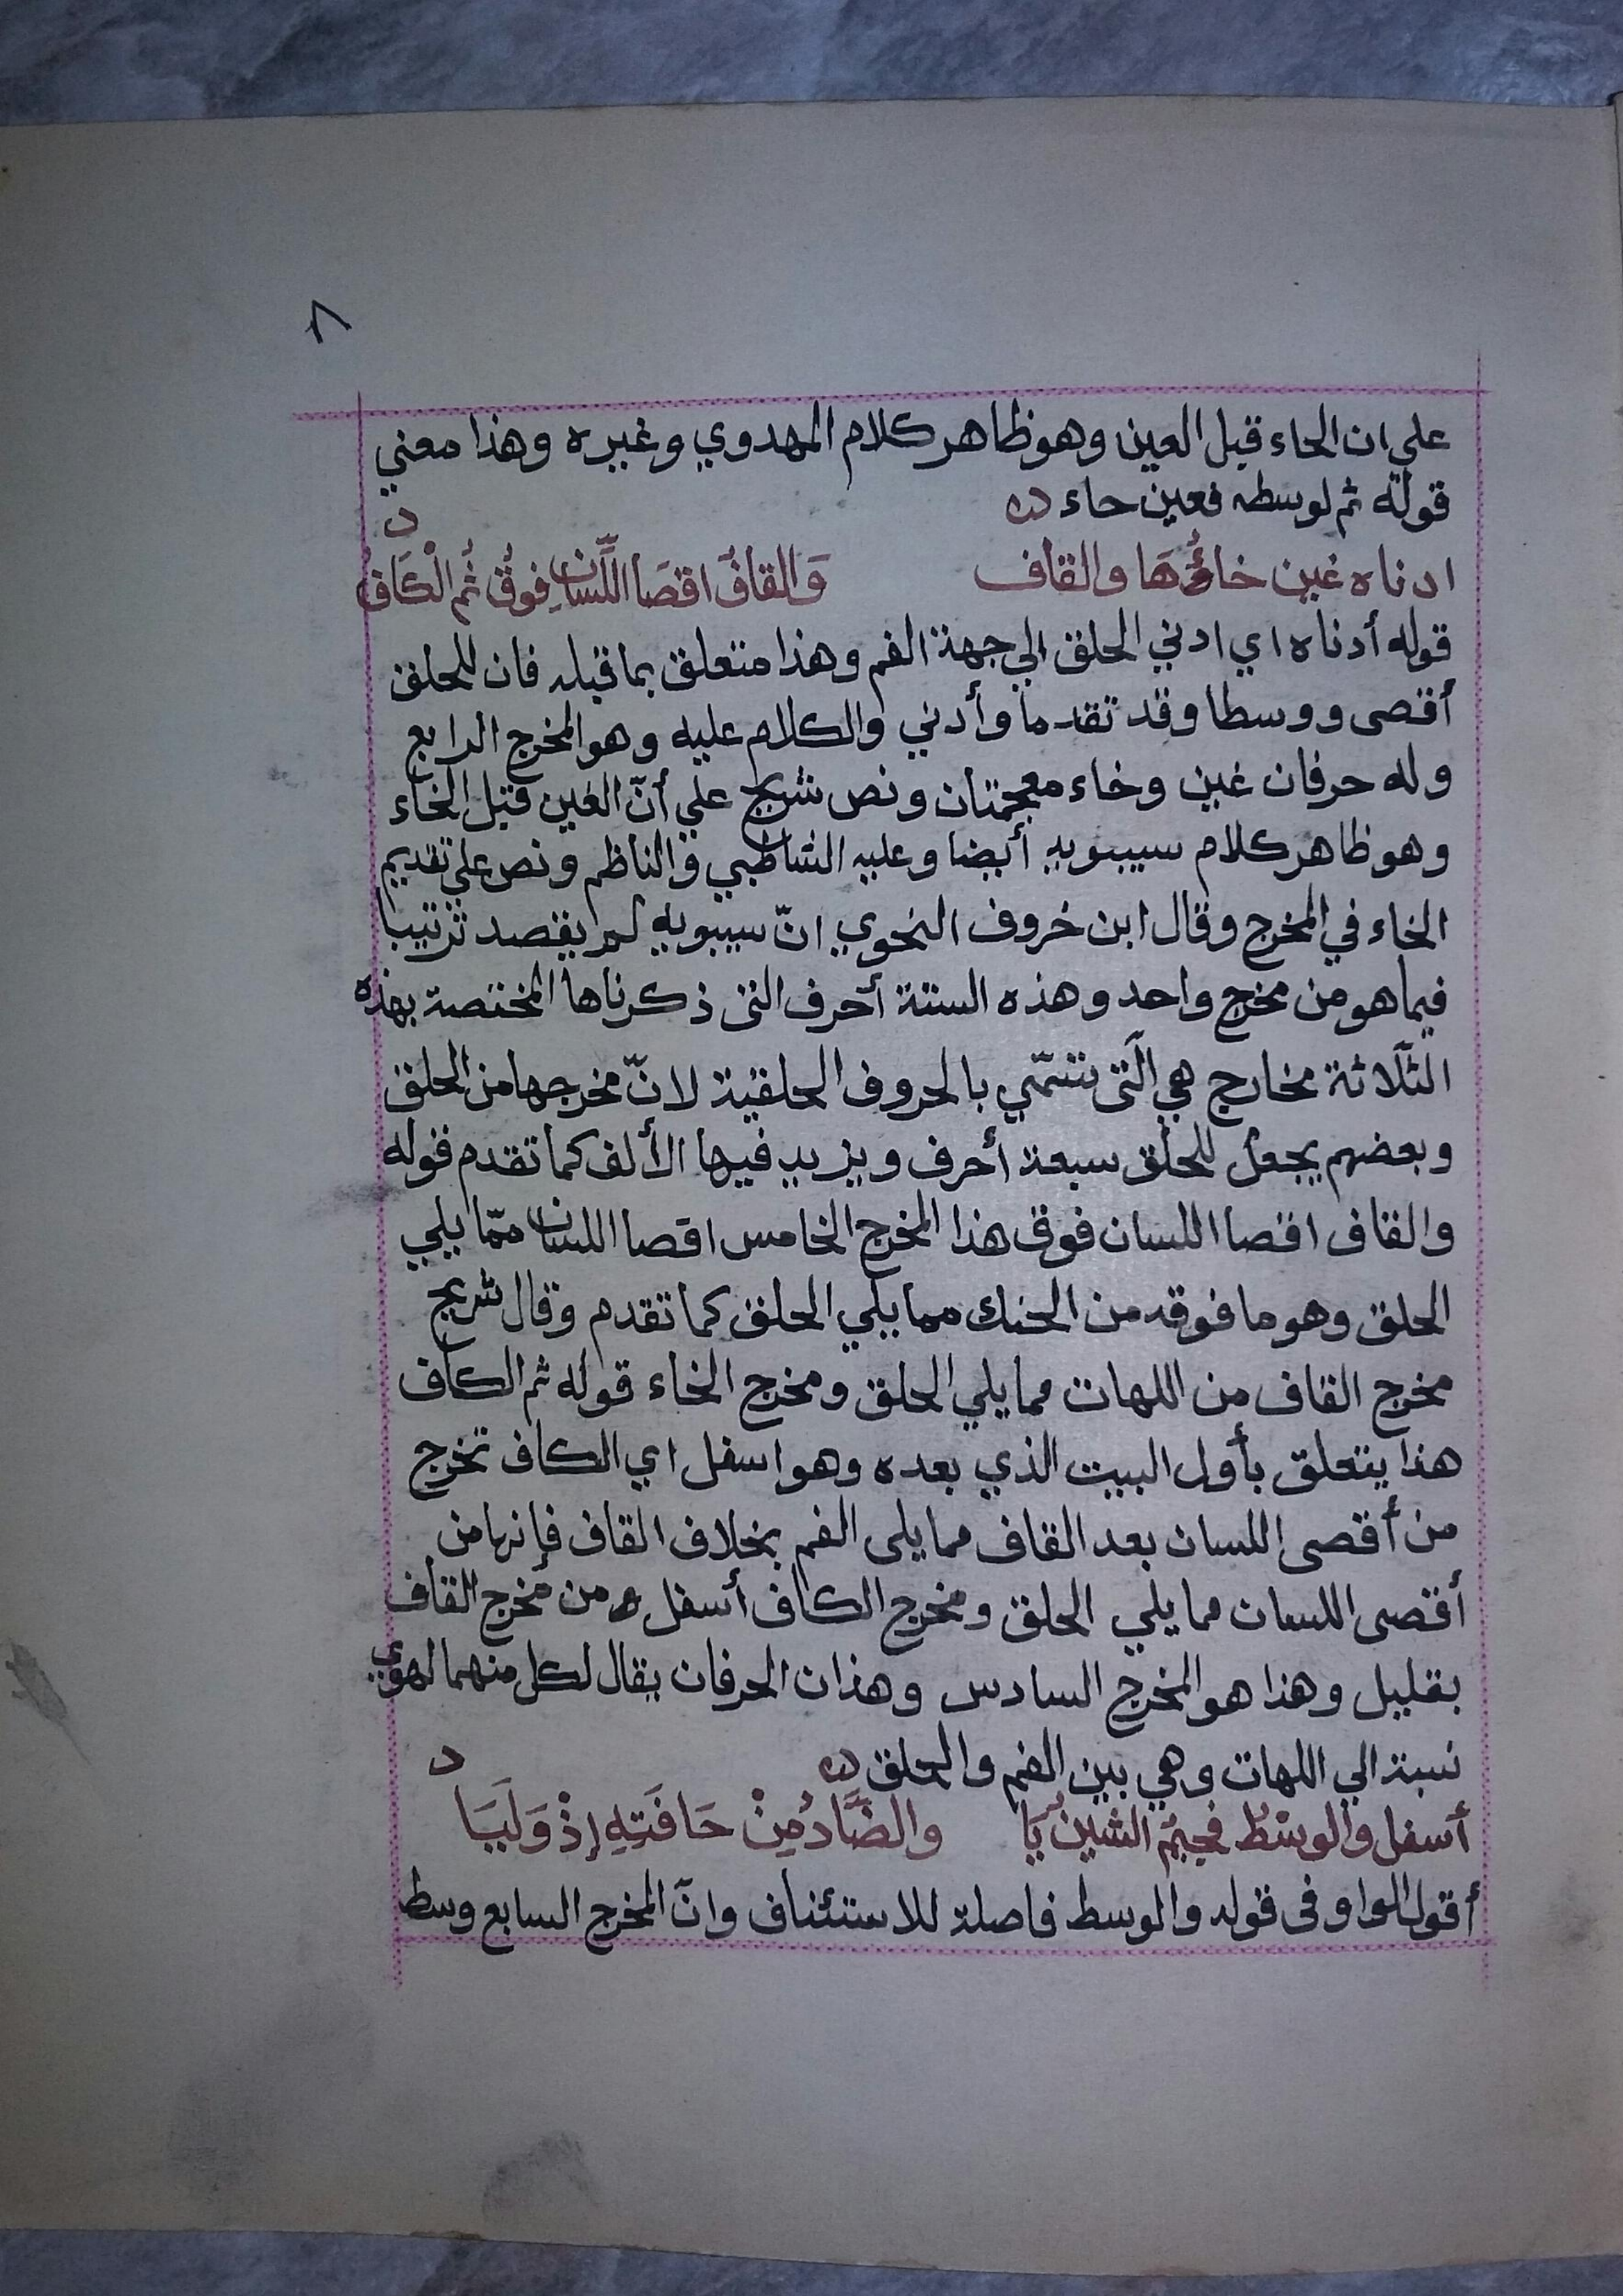 ٨
علي ان الحاء قبل العين وهو ظاهر كلام المهدوي وغيره وهذا معني
قوله ثم لوسطه فعين حاء
ادناه غين خاؤها والقاف وَالقافُ اقصَا اللّسانِ فوقُ ثُم الْكَافُ
قوله أدناه اي ادني الحلق الي جهة الفم وهذا متعلق بما قبله فان للحلق
أقصى ووسطا وقد تقدما وأدني والكلام عليه وهو المخرج الرابع
وله حرفان غين وخاء معجمتان ونص شريح علي أنّ الغين قبل الخاء
وهو ظاهر كلام سيبويه أيضا وعليه الشاطبي والناظم ونص علي تقديم
الخاء في المخرج وقال ابن خروف النحوي انّ سيبويه لم يقصد ترتيبا
فيما هو من مخرج واحد وهذه الستة أحرف التى ذكرناها المختصة بهذه
الثلاثة مخارج هي الّتى تتسمّي بالحروف الحلقية لانّ مخرجها من الحلق
وبعضهم يجعل للحلق سبعة أحرف ويزيد فيها الألف كما تقدم قوله
والقاف اقصا اللسان فوق هذا المخرج الخامس اقصا اللسان ممّا يلي
الحلق وهو ما فوقه من الحنك مما يلي الحلق كما تقدم وقال شريح
مخرج القاف من اللهات مما يلي الحلق ومخرج الخاء قوله ثم الكاف
هذا يتعلق بأول البيت الذي بعده وهو اسفل اي الكاف تخرج
من أقصى اللسان بعد القاف مما يلى الفم بخلاف القاف فإنها من
أقصى اللسان مما يلي الحلق ومخرج الكاف أسفل من مخرج القاف
بقليل وهذا هو المخرج السادس وهذان الحرفان يقال لكل منهما لهوي
نسبة الي اللهات وهي بين الفم والحلق
أسفل والوسْط فجيمُ الشين يَا والضَّادُ مِنْ حَافَتِهِ إِذْ وَلِيَا
أقول الواو فى قوله والوسط فاصلة للاستئناف وانّ المخرج السابع وسط